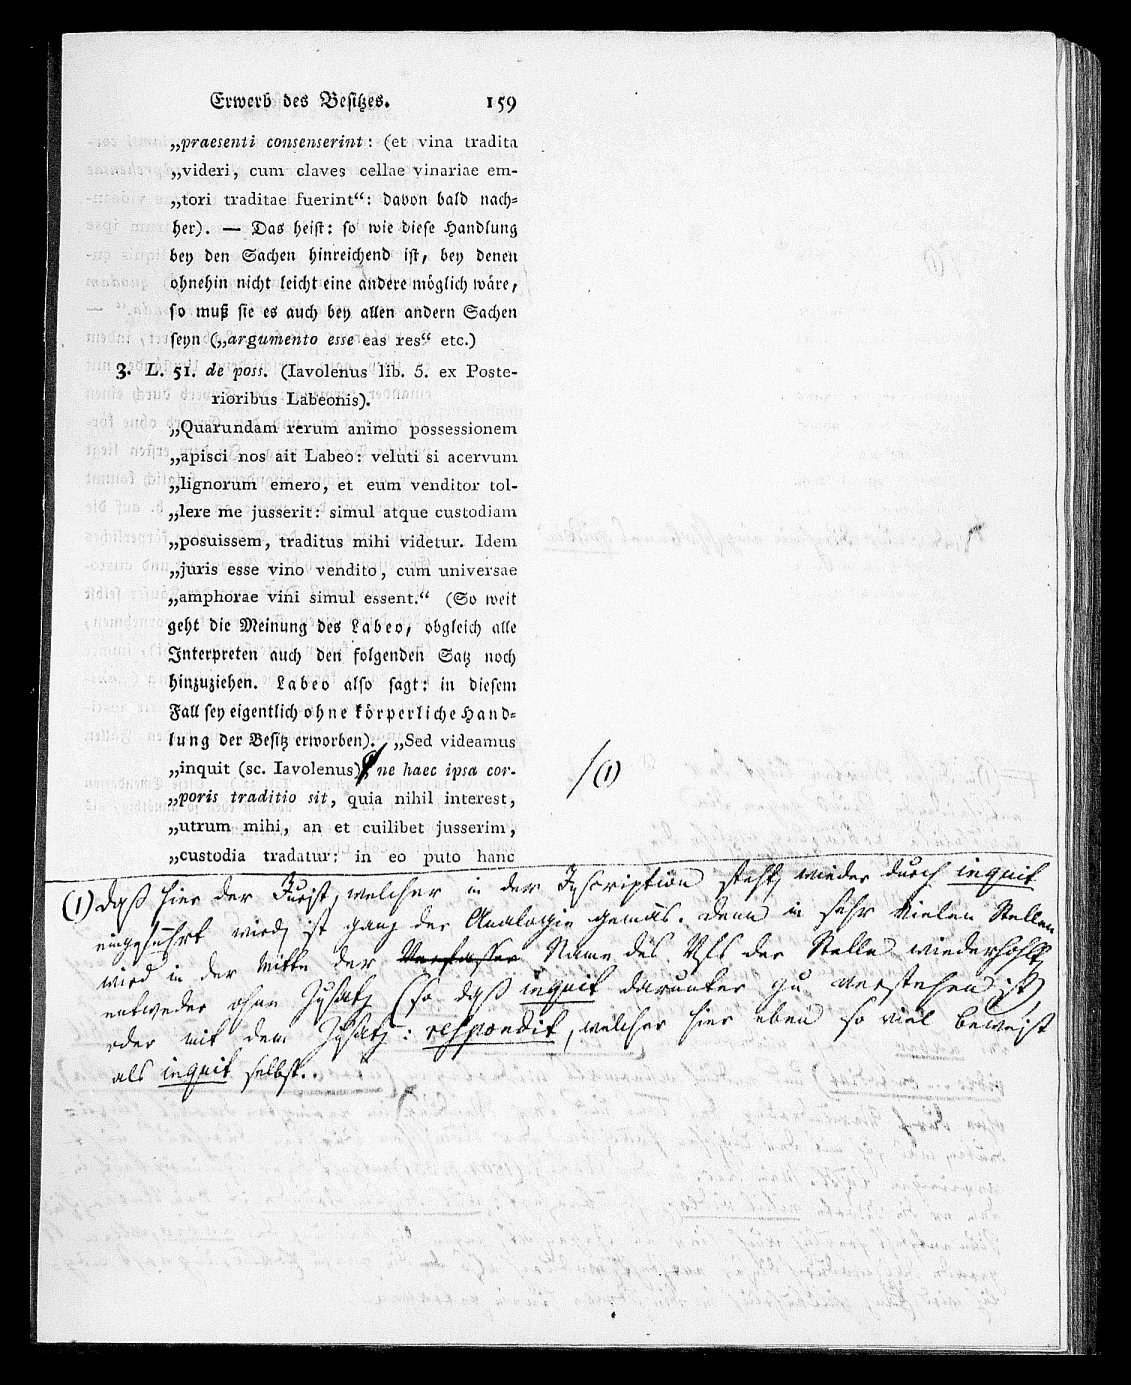 Erwerb des Beſitzes. 159
„praesenti consenserint: (et vina tradita
„videri, cum claves cellae vinariae em-
„tori traditae fuerint“: davon bald nach=
her). — Das heiſt: ſo wie dieſe Handlung
bey den Sachen hinreichend iſt, bey denen
ohnehin nicht leicht eine andere möglich wäre,
ſo muß ſie es auch bey allen andern Sachen
ſeyn („argumento esse eas res“ etc.)
3. L. 51. de poss. (Iavolenus lib. 5. ex Poste-
rioribus Labeonis).
„Quarundam rerum animo possessionem
„apisci nos ait Labeo: veluti si acervum
„lignorum emero, et eum venditor tol-
„lere me jusserit: simul atque custodiam
„posuissem, traditus mihi videtur. Idem
„juris esse vino vendito, cum universae
„amphorae vini simul essent.“ (So weit
geht die Meinung des Labeo, obgleich alle
Interpreten auch den folgenden Satz noch
hinzuziehen. Labeo alſo ſagt: in dieſem
Fall ſey eigentlich ohne körperliche Hand=
lung der Beſitz erworben). „Sed videamus
„inquit (sc. Iavolenus), ne haec ipsa cor-
/(1)
„poris traditio sit, quia nihil interest,
„utrum mihi, an et cuilibet jusserim,
„custodia tradatur: in eo puto hanc
(1) Daß hier der Jurist, welcher in der Inscription steht, wieder durch inquit
eingeführt wird, ist ganz der Analogie gemäs. Denn in sehr vielen Stellen
wird in der Mitte der Verfasser Name des Vfs der Stelle wiederhohlt,
entweder ohne Zusatz (so daß inquit darunter zu verstehen ist)
oder mit dem Zusatz: respondit, welcher hier eben so viel beweist
als inquit selbst.